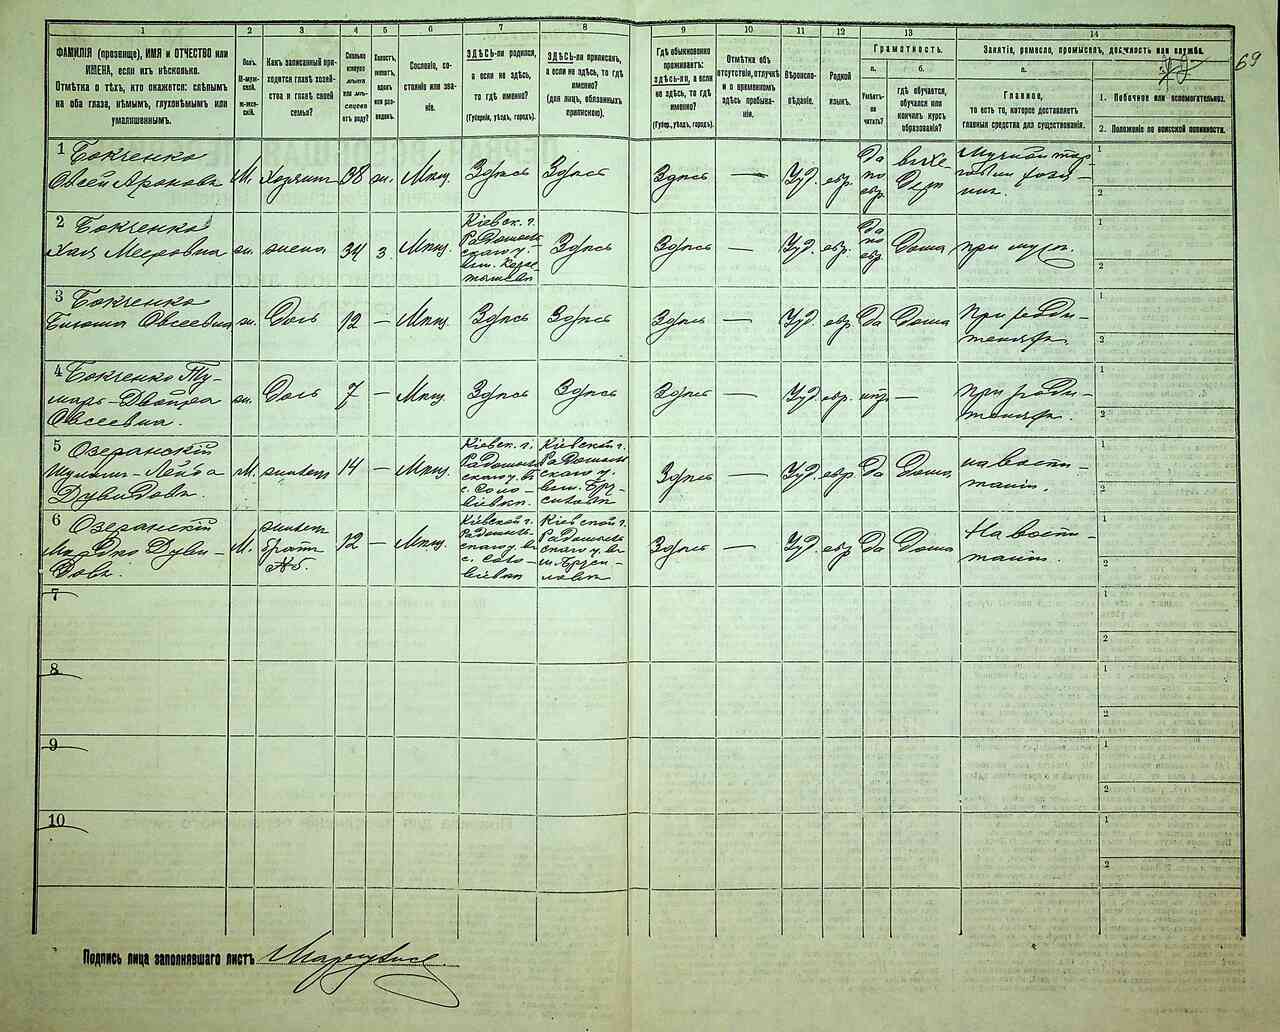 1
2
3
4
5
6
7
8
9
10
11
12
13
14
ФАМИЛІЯ (прозвище), ИМЯ и ОТЧЕСТВО или
ИМЕНА, если ихъ нѣсколько.
Отмѣтка о тѣхъ, кто окажется: слѣпымъ
на оба глаза, нѣмымъ, глухонѣмымъ или
умалишеннымъ.
Полъ.
М-муж-
ской.
ж-жен-
скій.
Какъ записанный при-
ходится главѣ хозяй-
ства и главѣ своей
семьи?
Сколько
минуло
лѣтъ
или мѣ-
сяцевъ
отъ роду?
Холостъ,
женатъ,
вдовъ
или раз-
веденъ.
Сословіе, со-
стояніе или зва-
ніе.
ЗДѢСЬ-ли родился,
а если не здѣсь,
то гдѣ именно?
(Губернія, уѣздъ, городъ).
ЗДѢСЬ-ли приписанъ,
а если не здѣсь, то гдѣ
именно?
(для лицъ, обязанныхъ
припискою).
Гдѣ обыкновенно
проживаетъ:
здѣсь-ли, а если
не здѣсь, то гдѣ
именно?
(Губер., уѣздъ, городъ).
Отмѣтка объ
отсутствіи, отлучкѣ
и о временномъ
здѣсь пребыва-
ніи.
Вѣроиспо-
вѣданіе.
Родной
языкъ.
Грамотность.
а.
Умѣетъ-
ли
читать?
б.
гдѣ обучается,
обучался или
кончилъ курсъ
образованія?
Занятіе, ремесло, промыселъ, должность или служба.
а.
Главное,
то есть то, которое доставляетъ
главныя средства для существованія.
1. Побочное или вспомогательное.
2. Положеніе по воинской повинности.
69
1 Бокченко
Овсей Ароновъ
М. хозяинъ 38 ж. Мѣщ. Здѣсь Здѣсь Здѣсь — Іуд. евр.
да
по
евр.
въ хе-
дерѣ
1
2
2 Бокченко
Хая Мееровна
ж. жена 34 з Мѣщ.
Кіевск. г.
Радомысль-
скаго у.
Здѣсь Здѣсь — Іуд. евр.
да
по
евр.
Дома при муж.
1
2
3 Бокченко
Овсеевна
ж. Дочь 12 — Мѣщ. Здѣсь Здѣсь Здѣсь — Іуд. евр. Да Дома
При роди-
теляхъ.
1
2
4 Бокченко Ту-
маръ-Двойра
Овсеевна.
ж. Дочь 7 — Мѣщ. Здѣсь Здѣсь Здѣсь — Іуд. евр. нѣтъ —
при роди-
теляхъ.
1
2
5 Озеранскій
Лейба
Дувидовъ.
М. 14 — Мѣщ.
Кіевск. г.
Радомысль-
скаго у.
с. Соло-
віевкѣ
Кіевской г.
Радомысль-
скаго у.
Здѣсь — Іуд. евр Да Дома
на воспи-
таніи.
1
2
6 Озеранскій
Дуви-
довъ.
М.
братъ
№5.
12 — Мѣщ.
Кіевской г.
Радомысль-
скаго у. въ
с. Соло-
віевкѣ
Кіевской г.
Радомысль-
скаго у. въ
Здѣсь — Іуд. евр Да Дома
На воспи-
таніи.
1
2
7
1
2
8
1
2
9
1
2
10
1
2
Подпись лица заполнявшаго листъ